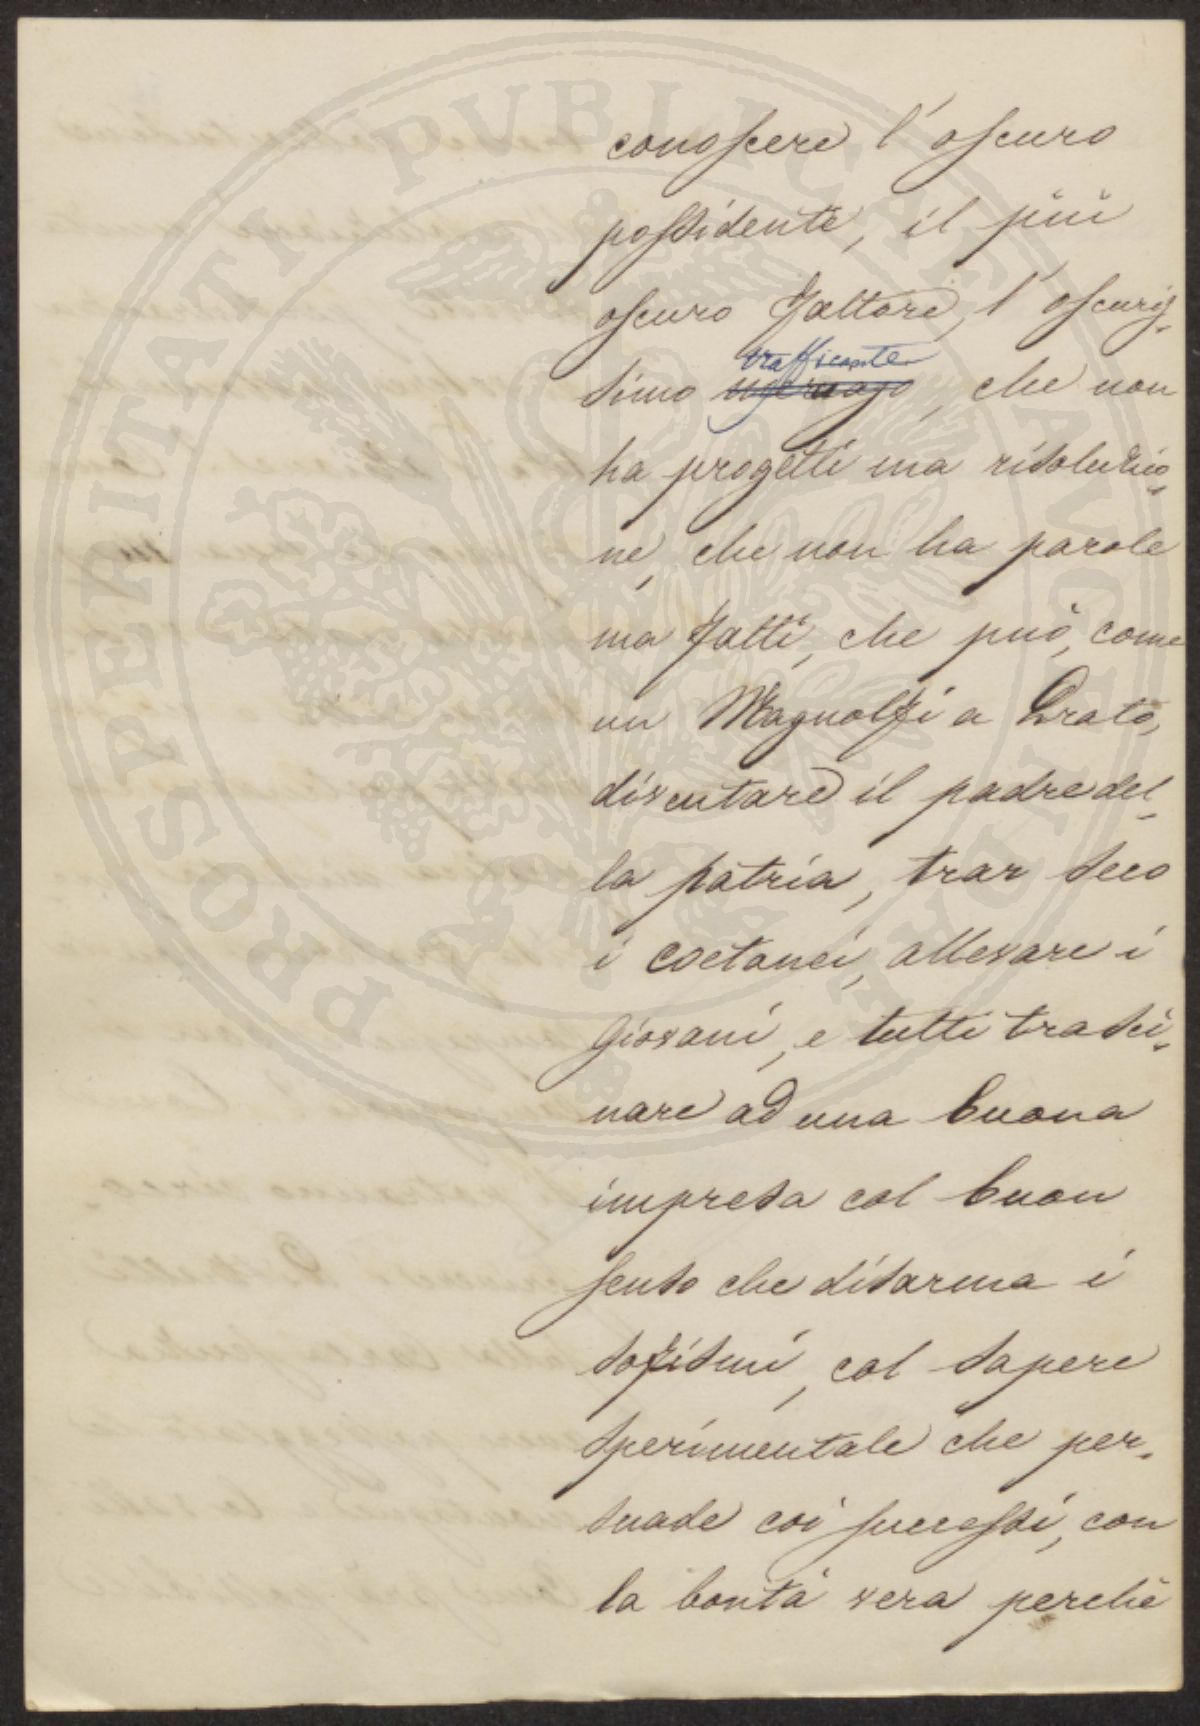 conoscere l'oscuro
possidente, il più
oscuro fattore, l'oscuris-
simo trafficante, che non
ha progetti ma risoluzio-
ne, che non ha parole
ma fatti, che può, come
un Magnolfi a Prato,
diventare il padre del-
la patria, trar seco
i coetanei, allevare i
giovani, e tutti trasci-
nare ad una buona
impresa col buon
senso che disarma i
sofismi, col sapere
sperimentale che per-
suade coi successi, con
la bontà vera perchè
PROSPERITATI PVBLICAE AVGENDAE